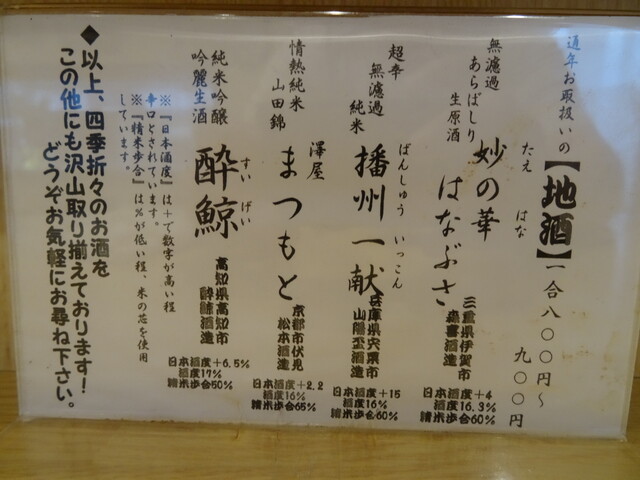 通年お取扱いの【地酒】一合八〇〇円～
九〇〇円
無濾過
あらばしり
生原酒
妙の華
たえ はな
はなぶさ
三重県伊賀市
森喜酒造
日本酒度+4
酒度16.3%
精米歩合60%
超辛
無濾過
純米
播州一献
ばんしゅう いっこん
兵庫県宍粟市
山陽盃酒造
日本酒度+15
酒度16%
精米歩合60%
情熱純米
山田錦
澤屋
まつもと
京都市伏見
松本酒造
日本酒度+2.2
酒度16%
精米歩合65%
純米吟醸
吟麗生酒
酔鯨
すい げい
高知県高知市
酔鯨酒造
日本酒度+6.5%
酒度17%
精米歩合50%
※『日本酒度』は+で数字が高い程
辛口とされています。
※『精米歩合』は%が低い程、米の芯を使用
しています。
◆以上、四季折々のお酒を
この他にも沢山取り揃えております!
どうぞお気軽にお尋ね下さい。